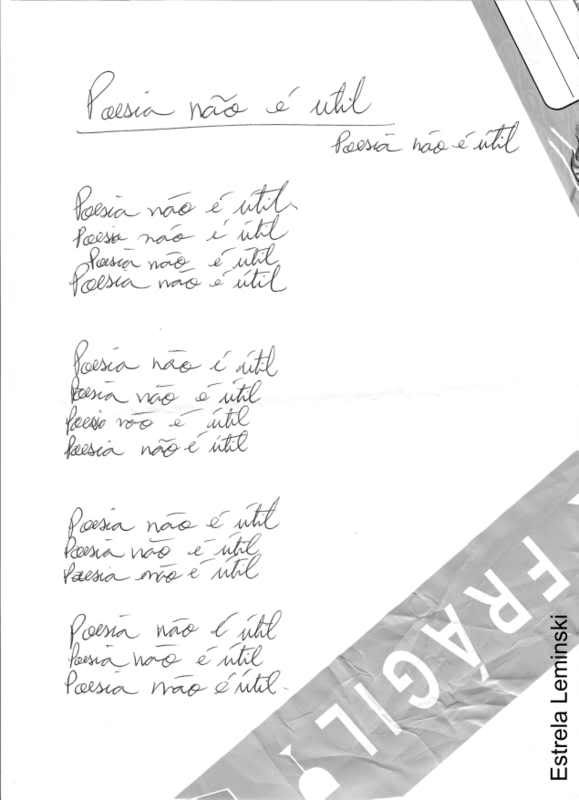 Poesia não é útil
Poesia não é útil
Poesia não é útil.
Poesia não é útil
Poesia não é útil
Poesia não é útil
Poesia não é útil
Poesia não é útil
Poesia não é útil
Poesia não é útil
Poesia não é útil
Poesia não é útil
Poesia não é útil
Poesia não é útil
Poesia não é útil
Poesia não é útil.
FRÁGIL
Estrela Leminski